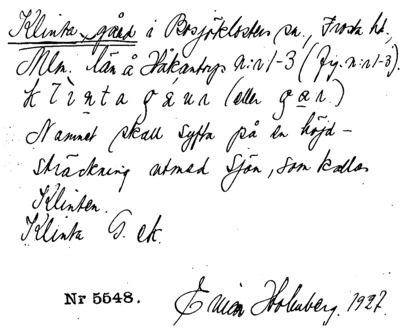 Klinta, gård i Bosjöklosters sn., Frosta hd,
Mlm. län å Håkantorps n:r 1-3 (fg. n:r 1-3).
klinta gaur (eller gar.)
Namnet skall syfta på en höjd-
sträckning utmed sjön, som kallas
Klinten.
Klinta G. ek.
Nr 5548. Holmberg. 1927.